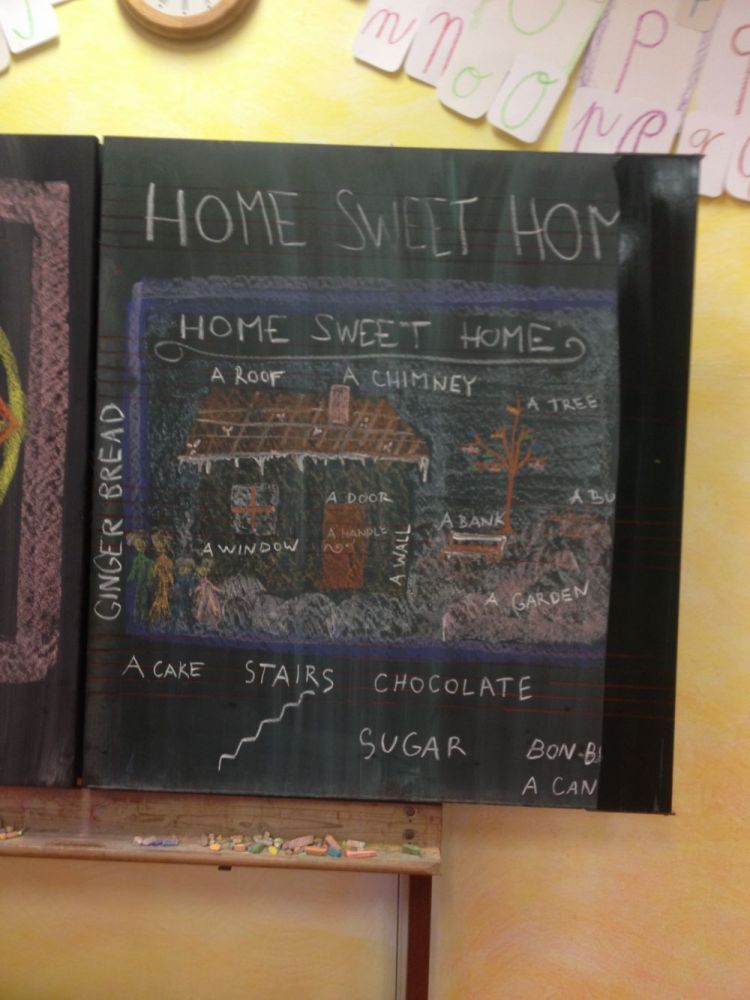 n n O p
o o p p
HOME SWEET HOM
HOME SWEET HOME
A ROOF A CHIMNEY
A TREE
A DOOR
A BU
A HANDLE
A BANK
A WINDOW
A WALL
A GARDEN
GINGER BREAD
A CAKE STAIRS CHOCOLATE
SUGAR BON-B
A CAN